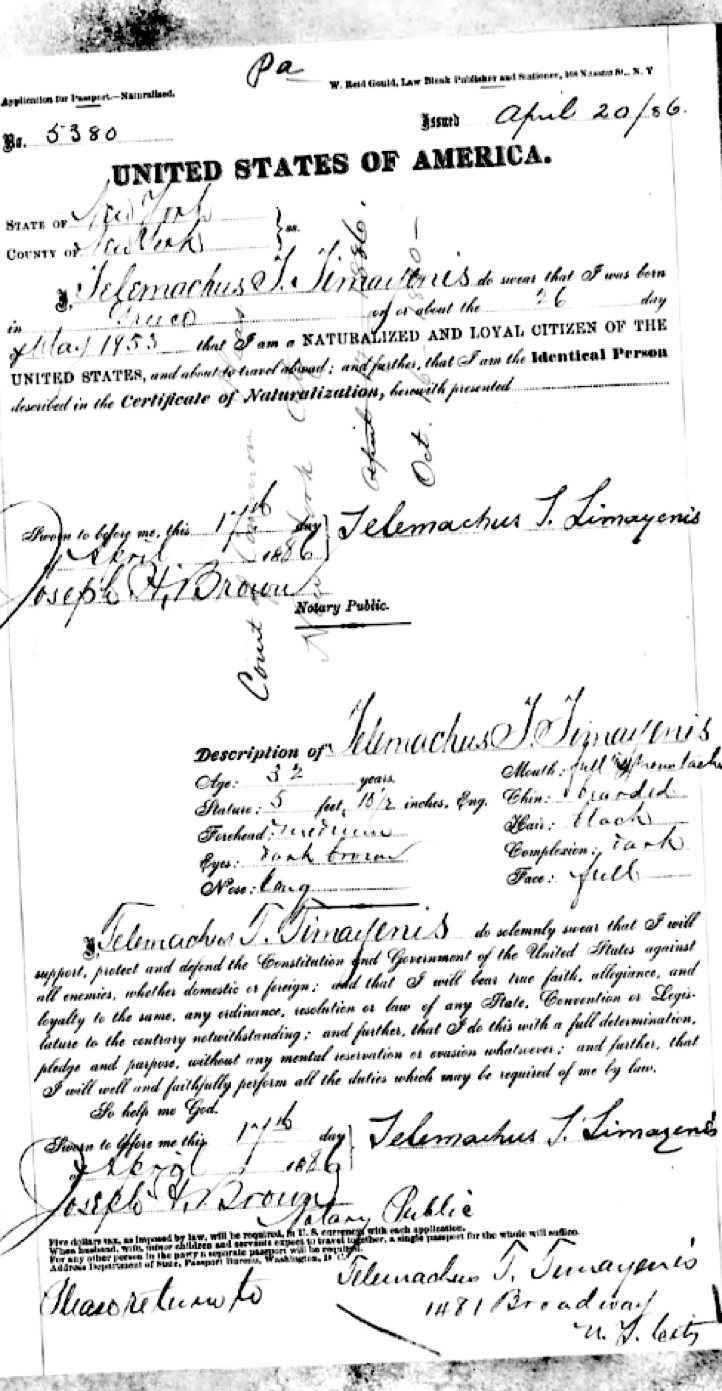 Pa
Application for Passport.—Naturalized.
W. Reid Gould, Law Blank Publisher and Stationer, 168 Nassau St., N. Y
No. 5380
Issued April 20/86.
UNITED STATES OF AMERICA.
STATE OF New York
COUNTY OF New York } ss.
I, Telemachus T. Timayenis do swear that I was born
in Greece on or about the 26 day
of May 1853 that I am a NATURALIZED AND LOYAL CITIZEN OF THE
UNITED STATES, and about to travel abroad; and further, that I am the Identical Person
described in the Certificate of Naturalization, herewith presented
Court of Common Pleas
New York
April 1886.
Oct. 16
Sworn to before me, this 17th day
of April 1886
Telemachus T. Timayenis
Joseph H. Brown
Notary Public.
Description of Telemachus T. Timayenis
Age: 32 years,
Stature: 5 feet, 10 1/2 inches, Eng.
Forehead: medium
Eyes: dark brown
Nose: long
Mouth: full
Chin: bearded
Hair: black
Complexion: dark
Face: full
I, Telemachus T. Timayenis do solemnly swear that I will
support, protect and defend the Constitution and Government of the United States against
all enemies, whether domestic or foreign; and that I will bear true faith, allegiance, and
loyalty to the same, any ordinance, resolution or law of any State, Convention or Legis-
lature to the contrary notwithstanding; and further, that I do this with a full determination,
pledge and purpose, without any mental reservation or evasion whatsoever; and further, that
I will well and faithfully perform all the duties which may be required of me by law.
So help me God.
Sworn to before me this 17th day
of April 1886
Telemachus T. Timayenis
Joseph H. Brown
Notary Public
Five dollars tax, as imposed by law, will be required, in U. S. currency with each application.
When husband, wife, minor children and servants expect to travel together, a single passport for the whole will suffice.
For any other person in the party a separate passport will be required.
Address Department of State, Passport Bureau, Washington, D. C.
Please return to
Telemachus T. Timayenis
1481 Broadway
N. Y. City